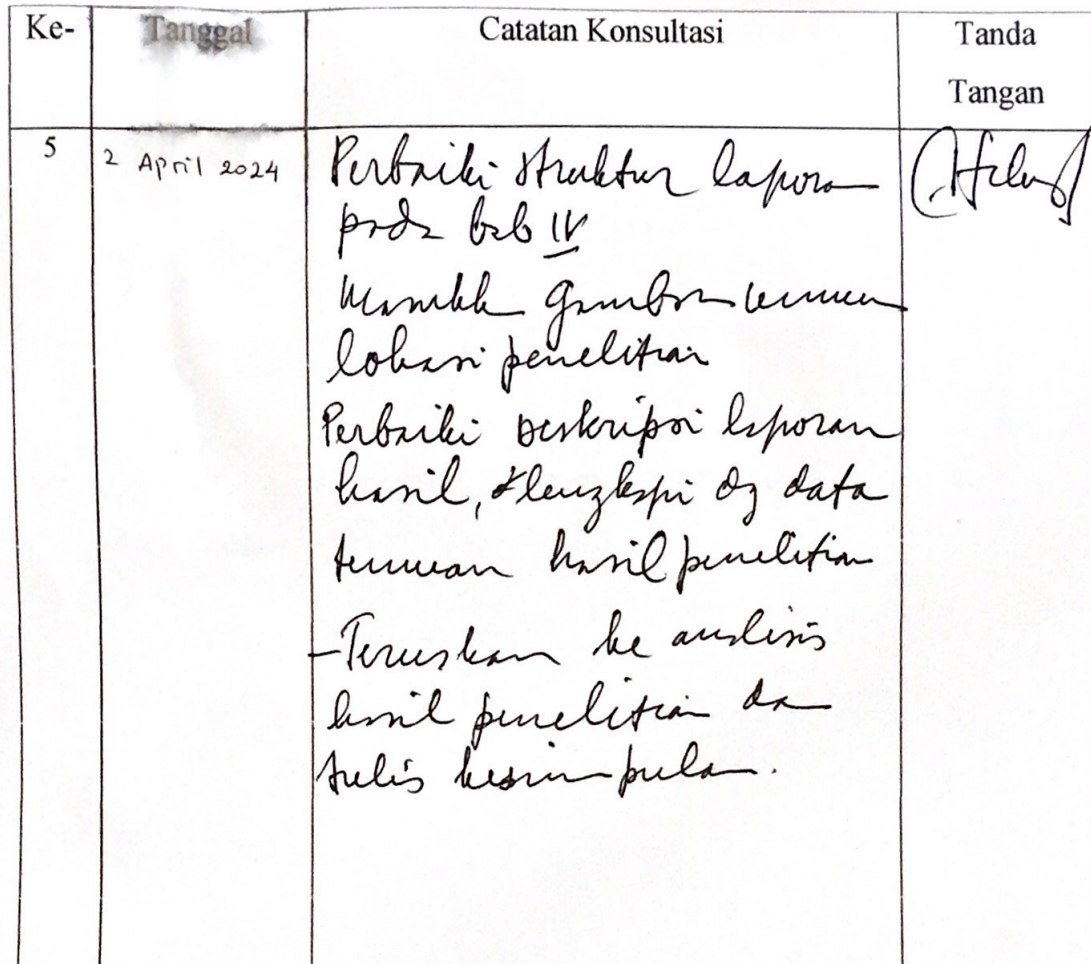 Ke-
Tanggal
Catatan Konsultasi
Tanda
Tangan
5
2 April 2024
Perbaiki struktur laporan
pada bab IV
gambaran umum
lokasi penelitian
Perbaiki deskripsi laporan
hasil, dlengkapi dg data
temuan hasil penelitian
-Teruskan ke analisis
hasil penelitian dan
tulis kesimpulan.